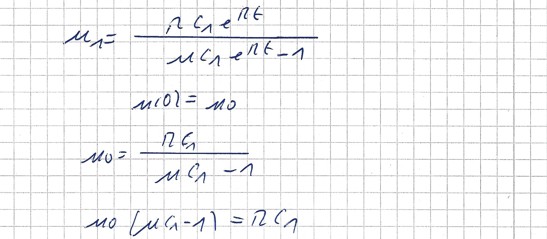 u₁ = \frac{r c₁ e^{rt}}{μ c₁ e^{rt} - 1}
u(0) = u₀
u₀ = \frac{r c₁}{μ c₁ - 1}
u₀ (μ c₁ - 1) = r c₁